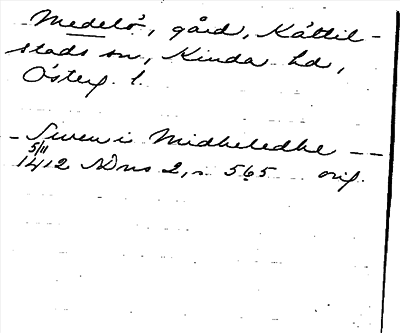 Medelö, gård, Kättil-
stads sn, Kinda hd,
Österg. l.
- Swen i Midheledhe --
5/11
1412 SDns 2, s. 565 orig.